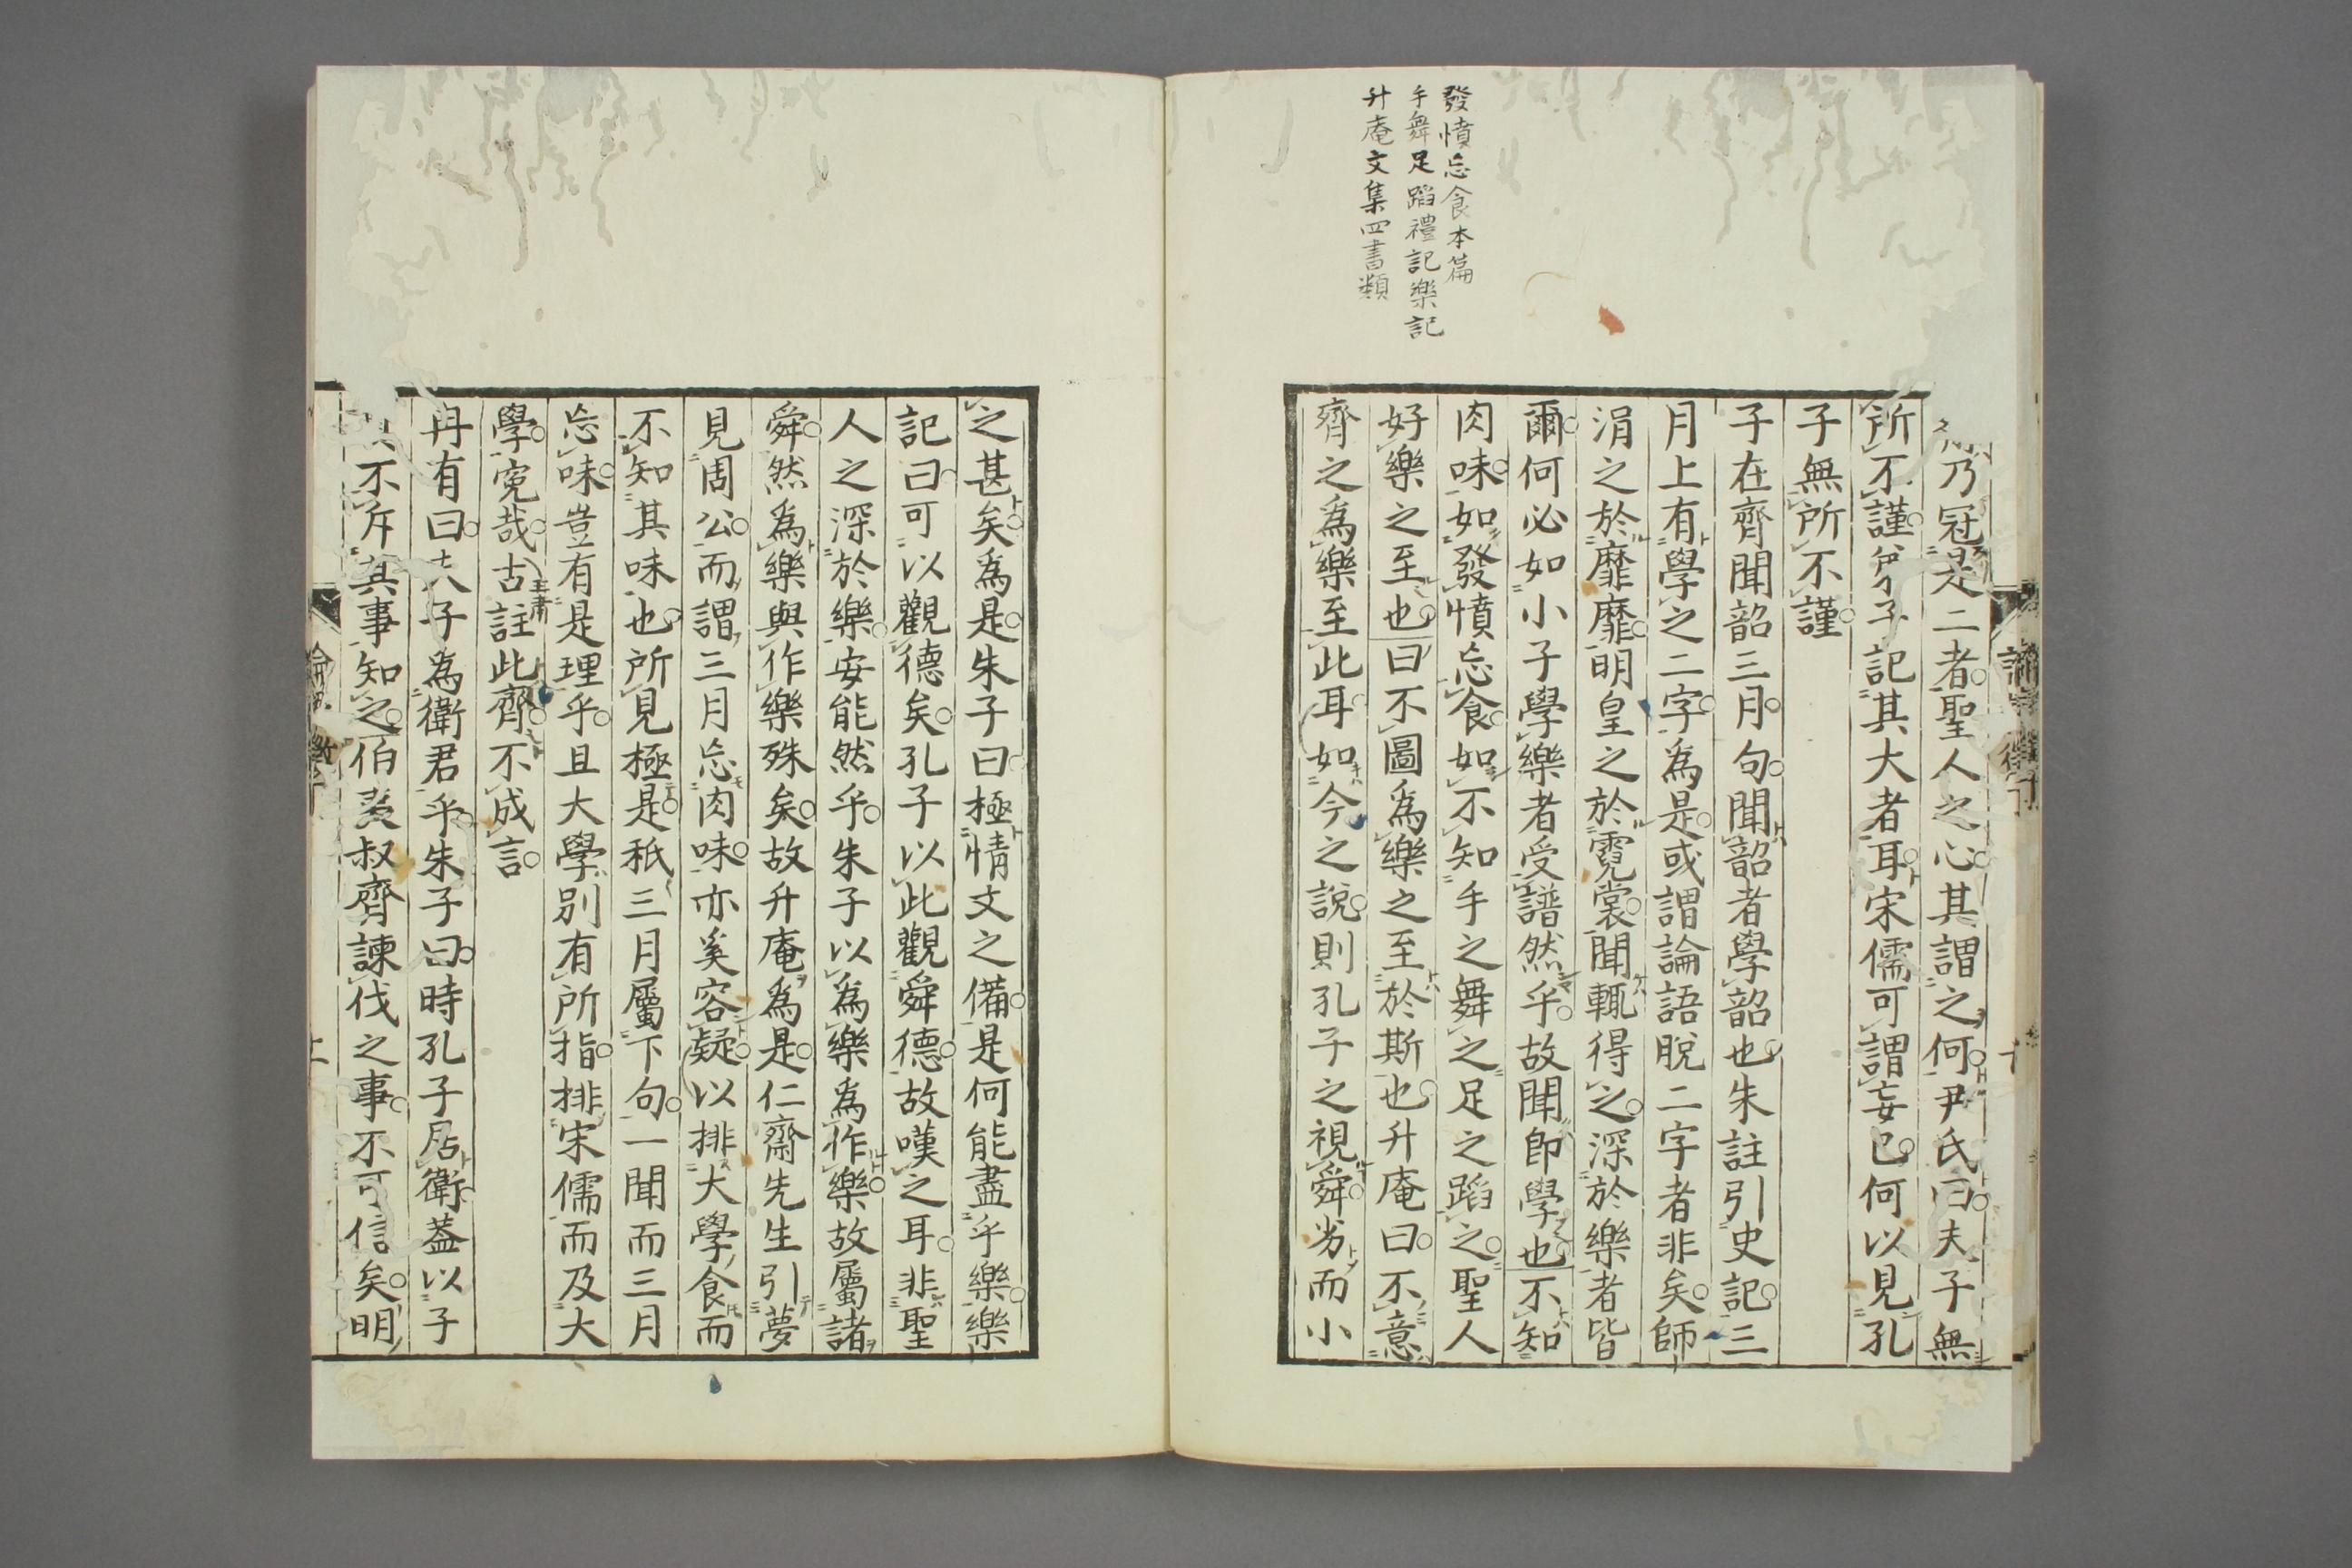 發憤忘食本篇
手舞足蹈禮記樂記
升庵文集四書類
乃冠是二者聖人之心其謂之何尹氏曰夫子無
所不謹弟子記其大者耳宋儒可謂妄已何以見孔
子無所不謹
子在齊聞韶三月句聞韶者學韶也朱註引史記三
月上有學之二字為是或謂論語脫二字者非矣師
涓之於靡靡明皇之於霓裳聞輒得之深於樂者皆
爾何必如小子學樂者受譜然乎故聞即學也不知
肉味如發憤忘食如不知手之舞之足之蹈之聖人
好樂之至也曰不圖為樂之至於斯也升庵曰不意
齊之為樂至此耳如今之說則孔子之視舜劣而小
之甚矣為是朱子曰極情文之備是何能盡乎樂樂
記曰可以觀德矣孔子以此觀舜德故嘆之耳非聖
人之深於樂安能然乎朱子以為樂為作樂故屬諸
舜然為樂與作樂殊矣故升庵為是仁齋先生引夢
見周公而謂三月忘肉味亦奚容疑以排大學食而
不知其味也所見極是秪三月屬下句一聞而三月
忘味豈有是理乎且大學別有所指排宋儒而及大
學冤哉古註王肅此齊不成言
冉有曰夫子為衛君乎朱子曰時孔子居衛蓋以子
不斥其事知之伯夷叔齊諫伐之事不可信矣明